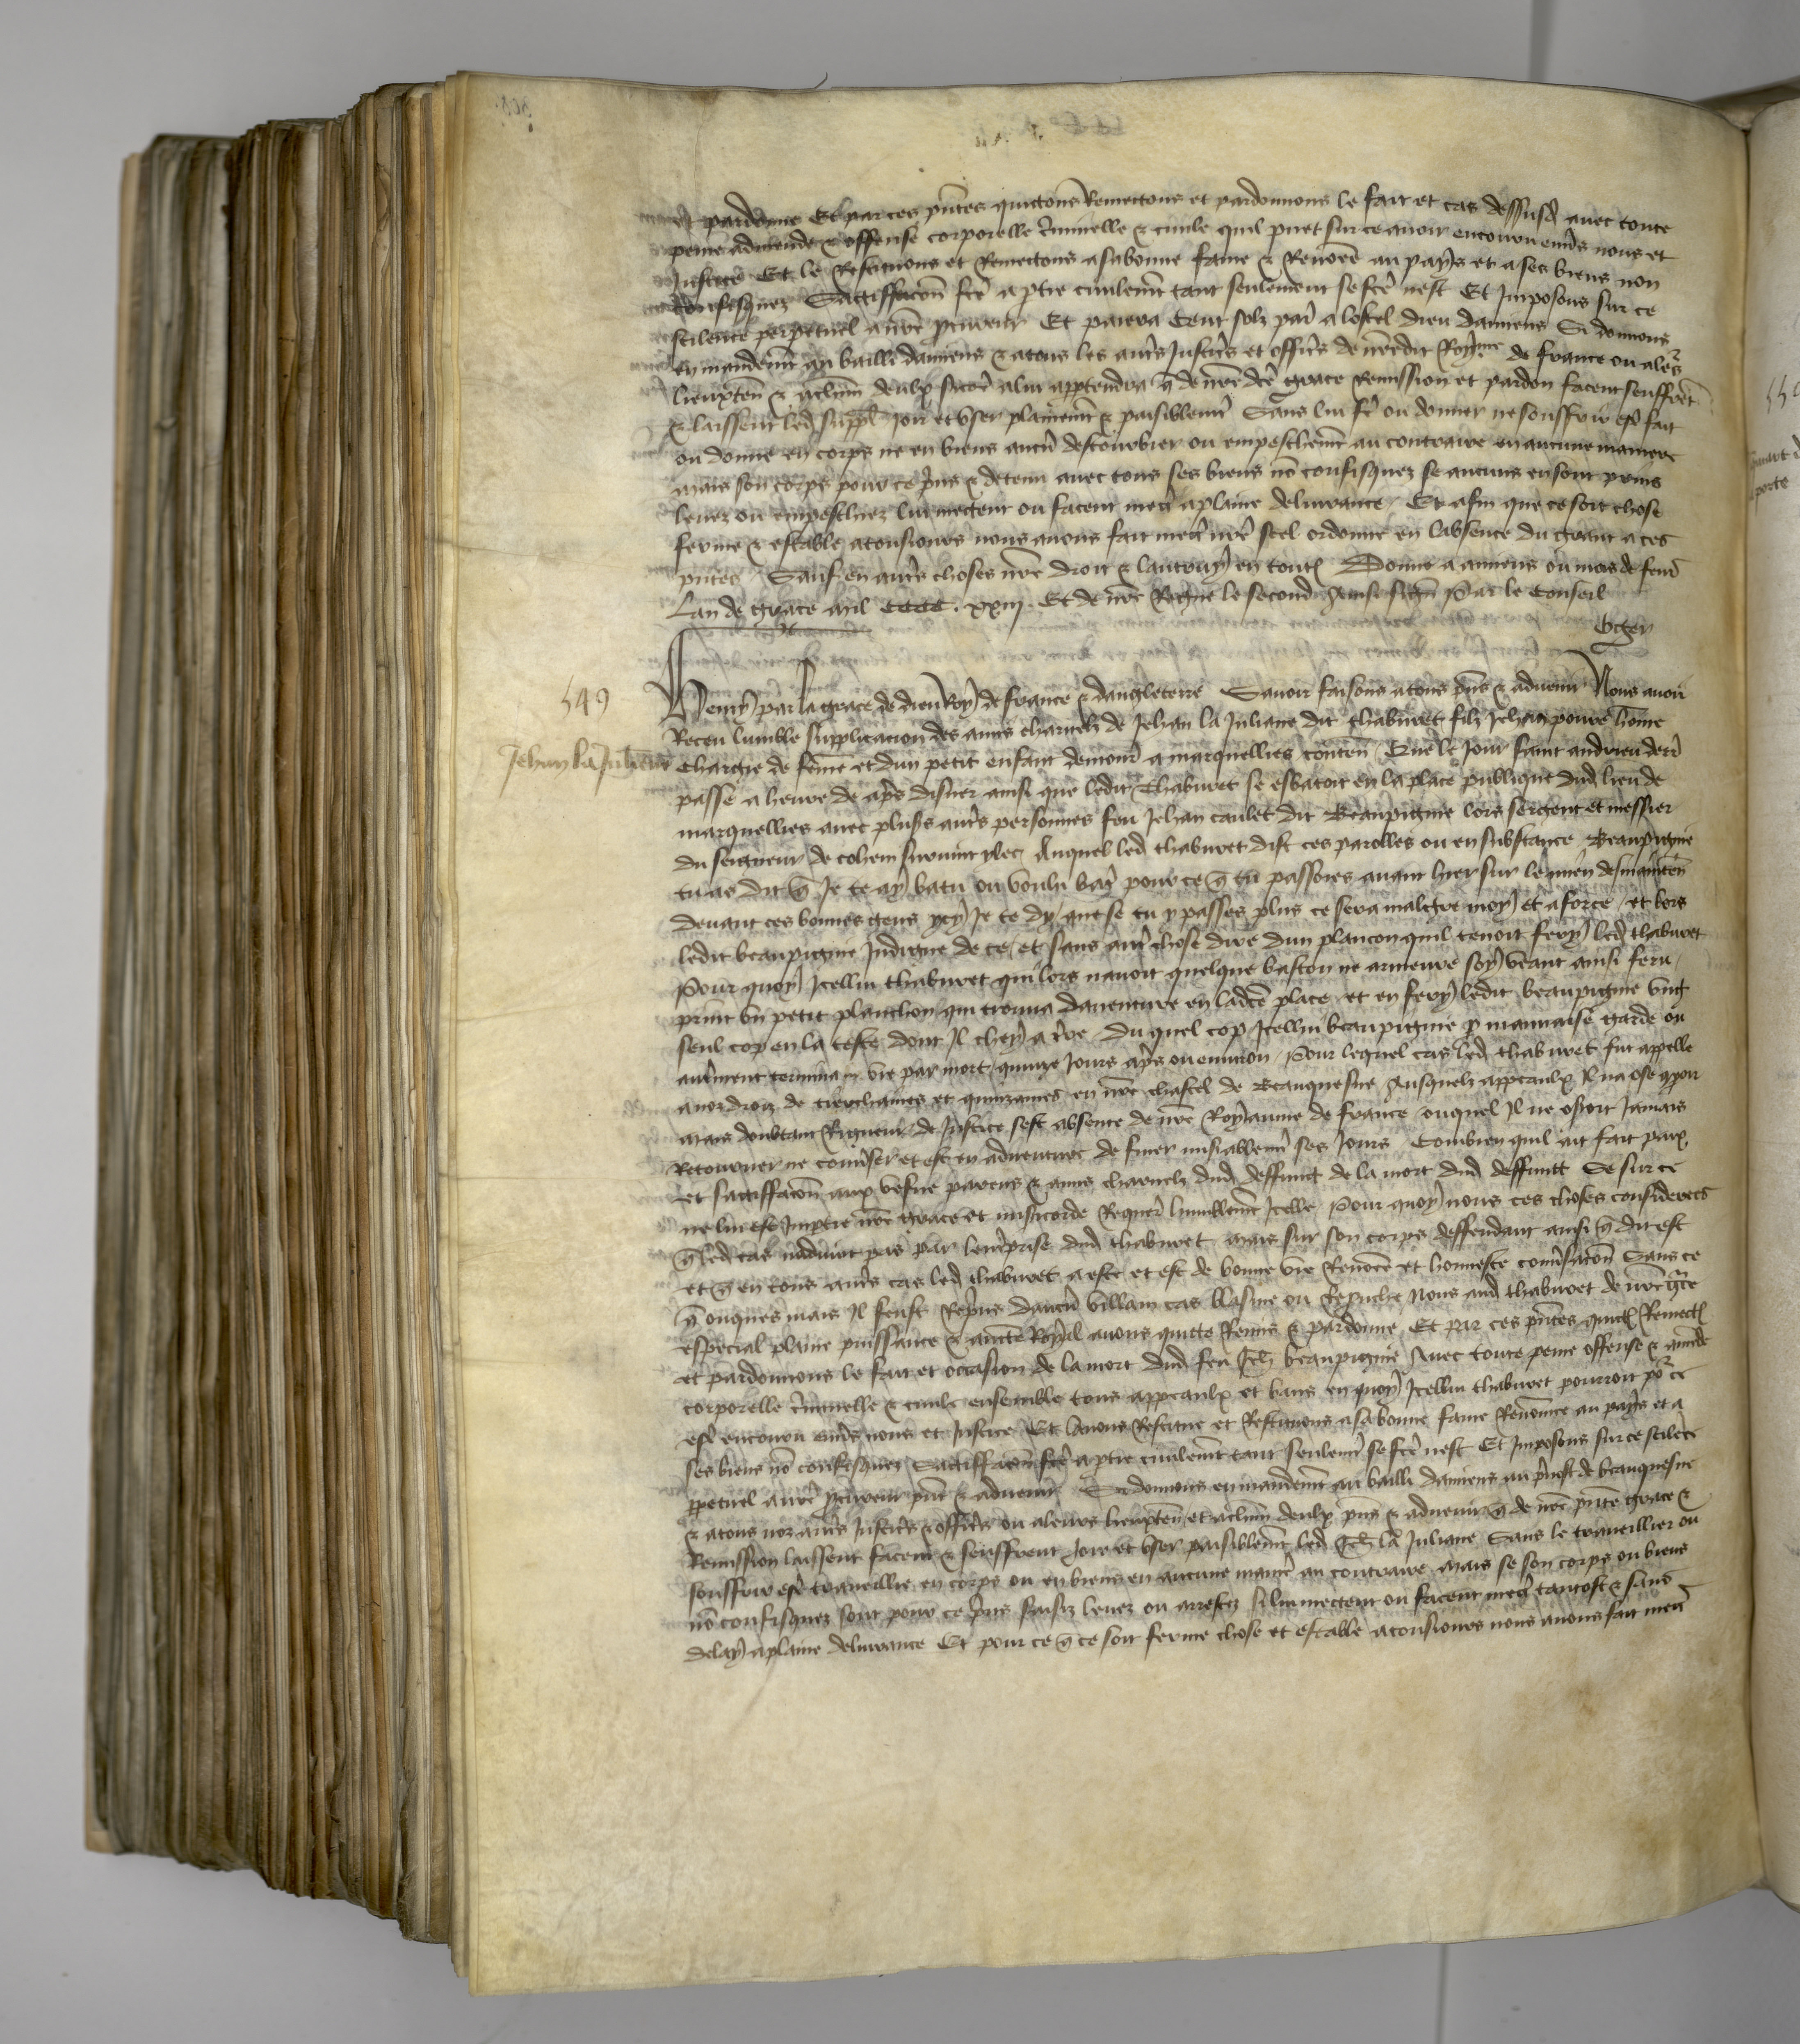 et pardonne Et par ces pñtes quictons Remectons et pardonnons le fait et cas dessusd avec toute
peine admende & offense corporelle cr̃iminelle & civile quil puet sur ce avoir encouru env̾s nous et
Justice Et le Restituons et Remectons a sa bonne fame & Renõee au pays et a ses biens non
confisquez Satisfacõn fc̃e a ptie civilemẽt tant seulement se fc̃e nest Et Imposons sur ce
scilence perpetuel a nr̃e procureur Et paiera Cent solz par̃ a lostel dieu damiens Si donnons
en mandemẽt au bailli damiens & a tous les aut̃s Justic̃s et offic̃s de nr̃edit Royme de france ou a les̃
lieuxten̄ & a chũn deulx sicõe a lui appertendra q̃ de nr̃e dc̃e grace Remission et pardon facent seuffrẽt
& laissent led suppl̃ Joir et user plainemẽt & paisiblemẽt Sans lui fe̾ ou donner ne souffrir est̃ fait
ou donne en corps ne en biens aucũ destourbier ou empeschemẽt au contraire en aucune maniere
mais son corps pour ce p̃ns & detenu avec tous ses biens nõ confisquez se aucuns en sont prins
levez ou empeschiez lui mectent ou facent mectr̃ a plaine delivrance / Et afin que ce soit chose
ferme & estable a tousiours nous avons fait mectr̃ nr̃e scel ordonne en labsence du grant a ces
pñtes / Sauf en aut̃s choses nr̃e droit & lautruy en toutes Donne a amiens ou mois de feur̃
Lan de grace mil CCCC . xxiij . Et de nr̃e Regne le second Ainsi signe Par le Conseil
Oger
549
Henry par la grace de dieu Roy de france & dangleterre Savoir faisons a tous pñs & advenir Nous avoir
Receu lumble supplicacion des amis charnelz de Jehan la Juliane dit thaburet filz Jehan povre hõme
Jehan la Juliane
Chargie de fẽme et dun petit enfant demour̃ a marquellies conten̄ / Que le Jour saint andrieu derr̃
passe a heure de ap̃s disner ainsi que ledit Thaburet se esbatoit en la place publique dud lieu de
marquellies avec plus̃s aut̃s personnes feu Jehan caulet dit Beaupigne lors sergent et messier
du seigneur de cohem survint illec Auquel led thaburet dist ces parolles ou en substance Beaupigne
tu as dit q̃ Je te ay batu ou voulu batr̃ pour ce q̃ tu passoies avant hier sur le mien des mainten̄
devant ces bonnes gens ycy Je te dy / que se tu y passes plus ce sera malgre moy et a force / et lors
ledit beaupigne Indigne de ce / et sans aut̃ chose dire dun plancon quil tenoit fery led thaburet
Pour quoy Icellui thaburet qui lors navoit quelque baston ne armeure soy veant ainsi feru /
print un petit planchon qui trouva daventure en ladc̃e place / et en fery ledit beaupigne ung
seul cop en la teste dont Il chey a tr̃re / du quel cop Icellui beaupigne p mauvaise garde ou
autrement termina vie par mort / quinze Jours ap̃s ou environ / Pour lequel cas led thaburet fut appelle
a noz droiz de tierchaines et quinzaines en nr̃e chastel de Beauquesne / Ausquelz appeaulx Il na ose cõparoir
mais doubtant Rigueur de Justice sest absente de nr̃e Royaume de france / ouquel Il ne oseroit Jamais
Retourner ne conv̾ser et est en adventure de finer mis̃ablemẽt ses Jours Combien quil ait fait paix
et satisfacõn aux vesve parens & amis charnelz dud deffunct de la mort dud deffunct Se sur ce
ne lui est Imptie nr̃e grace et mis̃icorde Requer̃ humblemẽt Icelle / Pour quoy nous ces choses considerees
q̃ led cas nadvint pas par lent̾prise dud thaburet mais sur son corps deffendant ainsi q̃ dit est
et q̃ en tous aut̃s cas led thaburet a este et est de bonne vie Renõee et honneste conv̾sacõn Sans ce
q̃ onques mais Il feust Rep̃ns daucũ villain cas blasme ou Reprouche Nous aud thaburet de nr̃e gr̃ce
especial plaine puissance & auctc̃e Royal avons quicte Remis & pardonne Et par ces pñtes quictõs Remectõs
et pardonnons le fait et occasion de la mort dud feu Jeh̃ beaupigne Avec toute peine offense & amẽde
corporelle cr̃iminelle & civile ensemble tous appeaulx et bans en quoy Icellui thaburet pourroit po̾ ce
est̃ encouru env̾s nous et Justice Et lavons Restitue et Restituons a sa bonne fame Renommee au pays et a
ses biens nõ confisquez Satisfacõn fc̃e a ptie civilemẽt tant seulemẽt se fc̃e nest Et Imposons sur ce scilẽce
ppetuel a nr̃e pcureur pñt & advenir Si donnons en mandemẽt au bailli damiens au p̃vost de beauquesne
& a tous noz aut̃s Justic̃s & offic̃s ou a leurs lieuxten̄ et a chũn deulx pñs & advenir q̃ de nr̃e pñte grace &
Remission laissent facent & seuffrent Joir et user paisiblemẽt led Jeh̃ la Juliane Sans le traveillier ou
souffrir est̃ traveillie en corps ou en biens en aucune manie̾ au contraire mais se son corps ou biens
nõ confisquez sont pour ce p̃ns saisiz levez ou arrestez si lui mectent ou facent mectr̃ tantost & sans
delay a plaine delivrance Et pour ce q̃ ce soit ferme chose et estable a tousiours nous avons fait mectr̃